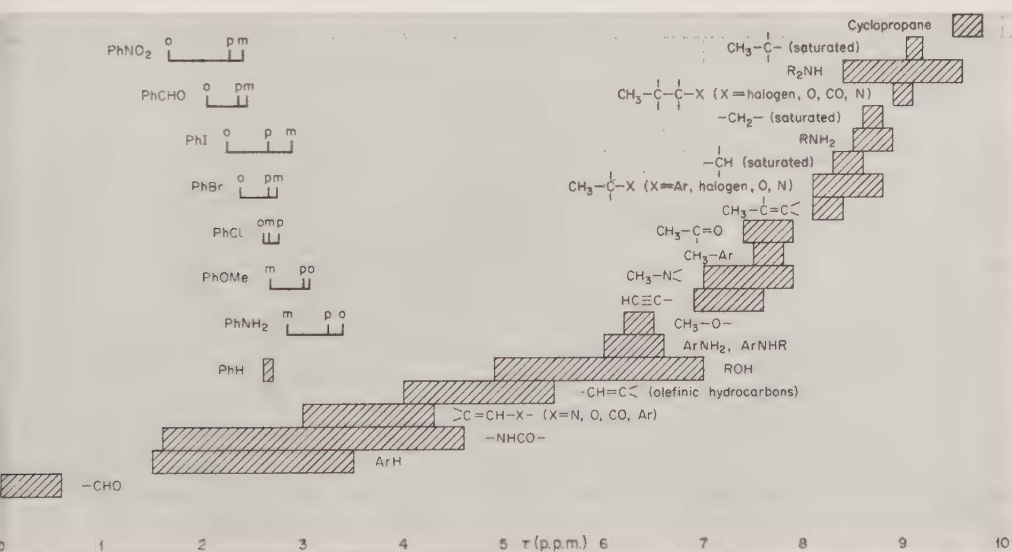 Cyclopropane
CH₃–C– (saturated)
R₂NH
CH₃–C–C–X (X=halogen, O, CO, N)
–CH₂– (saturated)
RNH₂
–CH (saturated)
CH₃–C–X (X=Ar, halogen, O, N)
CH₃–C=C<
CH₃–C=O
CH₃–Ar
CH₃–N<
HC≡C–
CH₃–O–
ArNH₂, ArNHR
ROH
-CH=C< (olefinic hydrocarbons)
>C=CH–X– (X=N, O, CO, Ar)
–NHCO–
ArH
–CHO
PhNO₂ o p m
PhCHO o p m
PhI o p m
PhBr o p m
PhCl o m p
PhOMe m p o
PhNH₂ m p o
PhH
0 1 2 3 4 5 τ (p.p.m.) 6 7 8 9 10